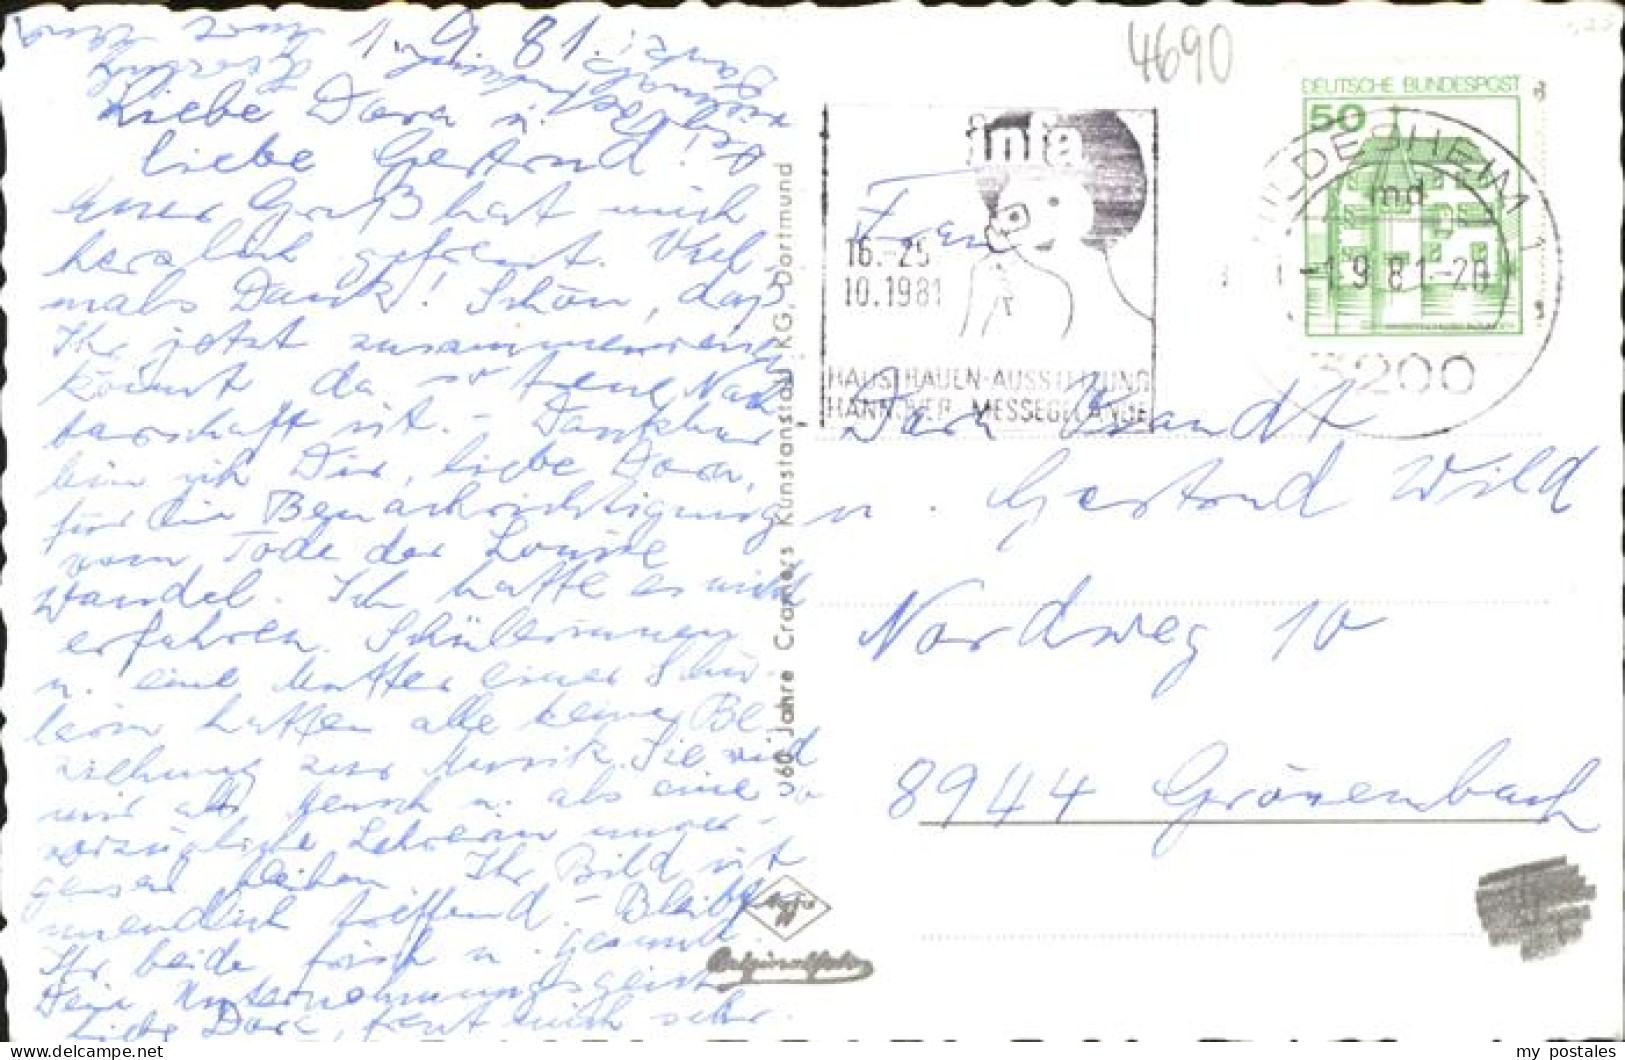 1.9.81.
Liebe Dora u.
liebe Gertrud!
Euer Gruß hat mich
herzlich gefreut. Viel-
mals Dank! Schön, daß
Ihr jetzt zusammen
könnt, da so
barschaft ist. - Dankbar
bin ich Dir, liebe Dora,
für die Benachrichtigung
vom Tode der Louise
Wandel. Ich hatte es nicht
erfahren. Schülerinnen
u. eine Mutter einer Schü-
lerin hatten alle keine Be-
ziehung zur Musik. Sie wird
mir als Mensch u. als eine so
vorzügliche Lehrerin unver-
gessen bleiben. Ihr Bild ist
unendlich treffend. - Bleibt
Ihr beide frisch u. gesund.
Dein Unternehmungsgeist,
liebe Dora, freut mich sehr.
360 Jahre Cramers Kunstanstalt KG, Dortmund
4690
infa
16.-25
10.1981
HAUSFRAUEN-AUSSTELLUNG
HANNOVER MESSEGELÄNDE
DEUTSCHE BUNDESPOST
50
HILDESHEIM 1
md
-1.9.81-20
3200
Frau
Dora Brandt
u. Gertrud Wild
Nordweg 10
8944 Grönenbach
my postales